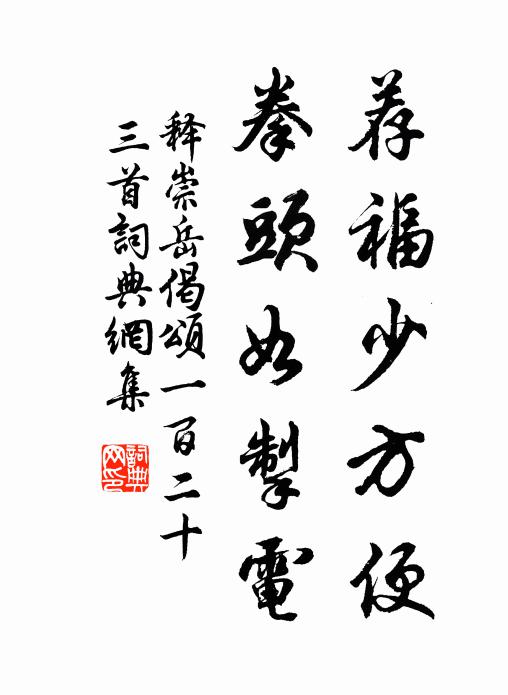 荐福少方便
拳頭如掣電
释崇岳偈頌一百二十
三首詞典網集
詞典
网印